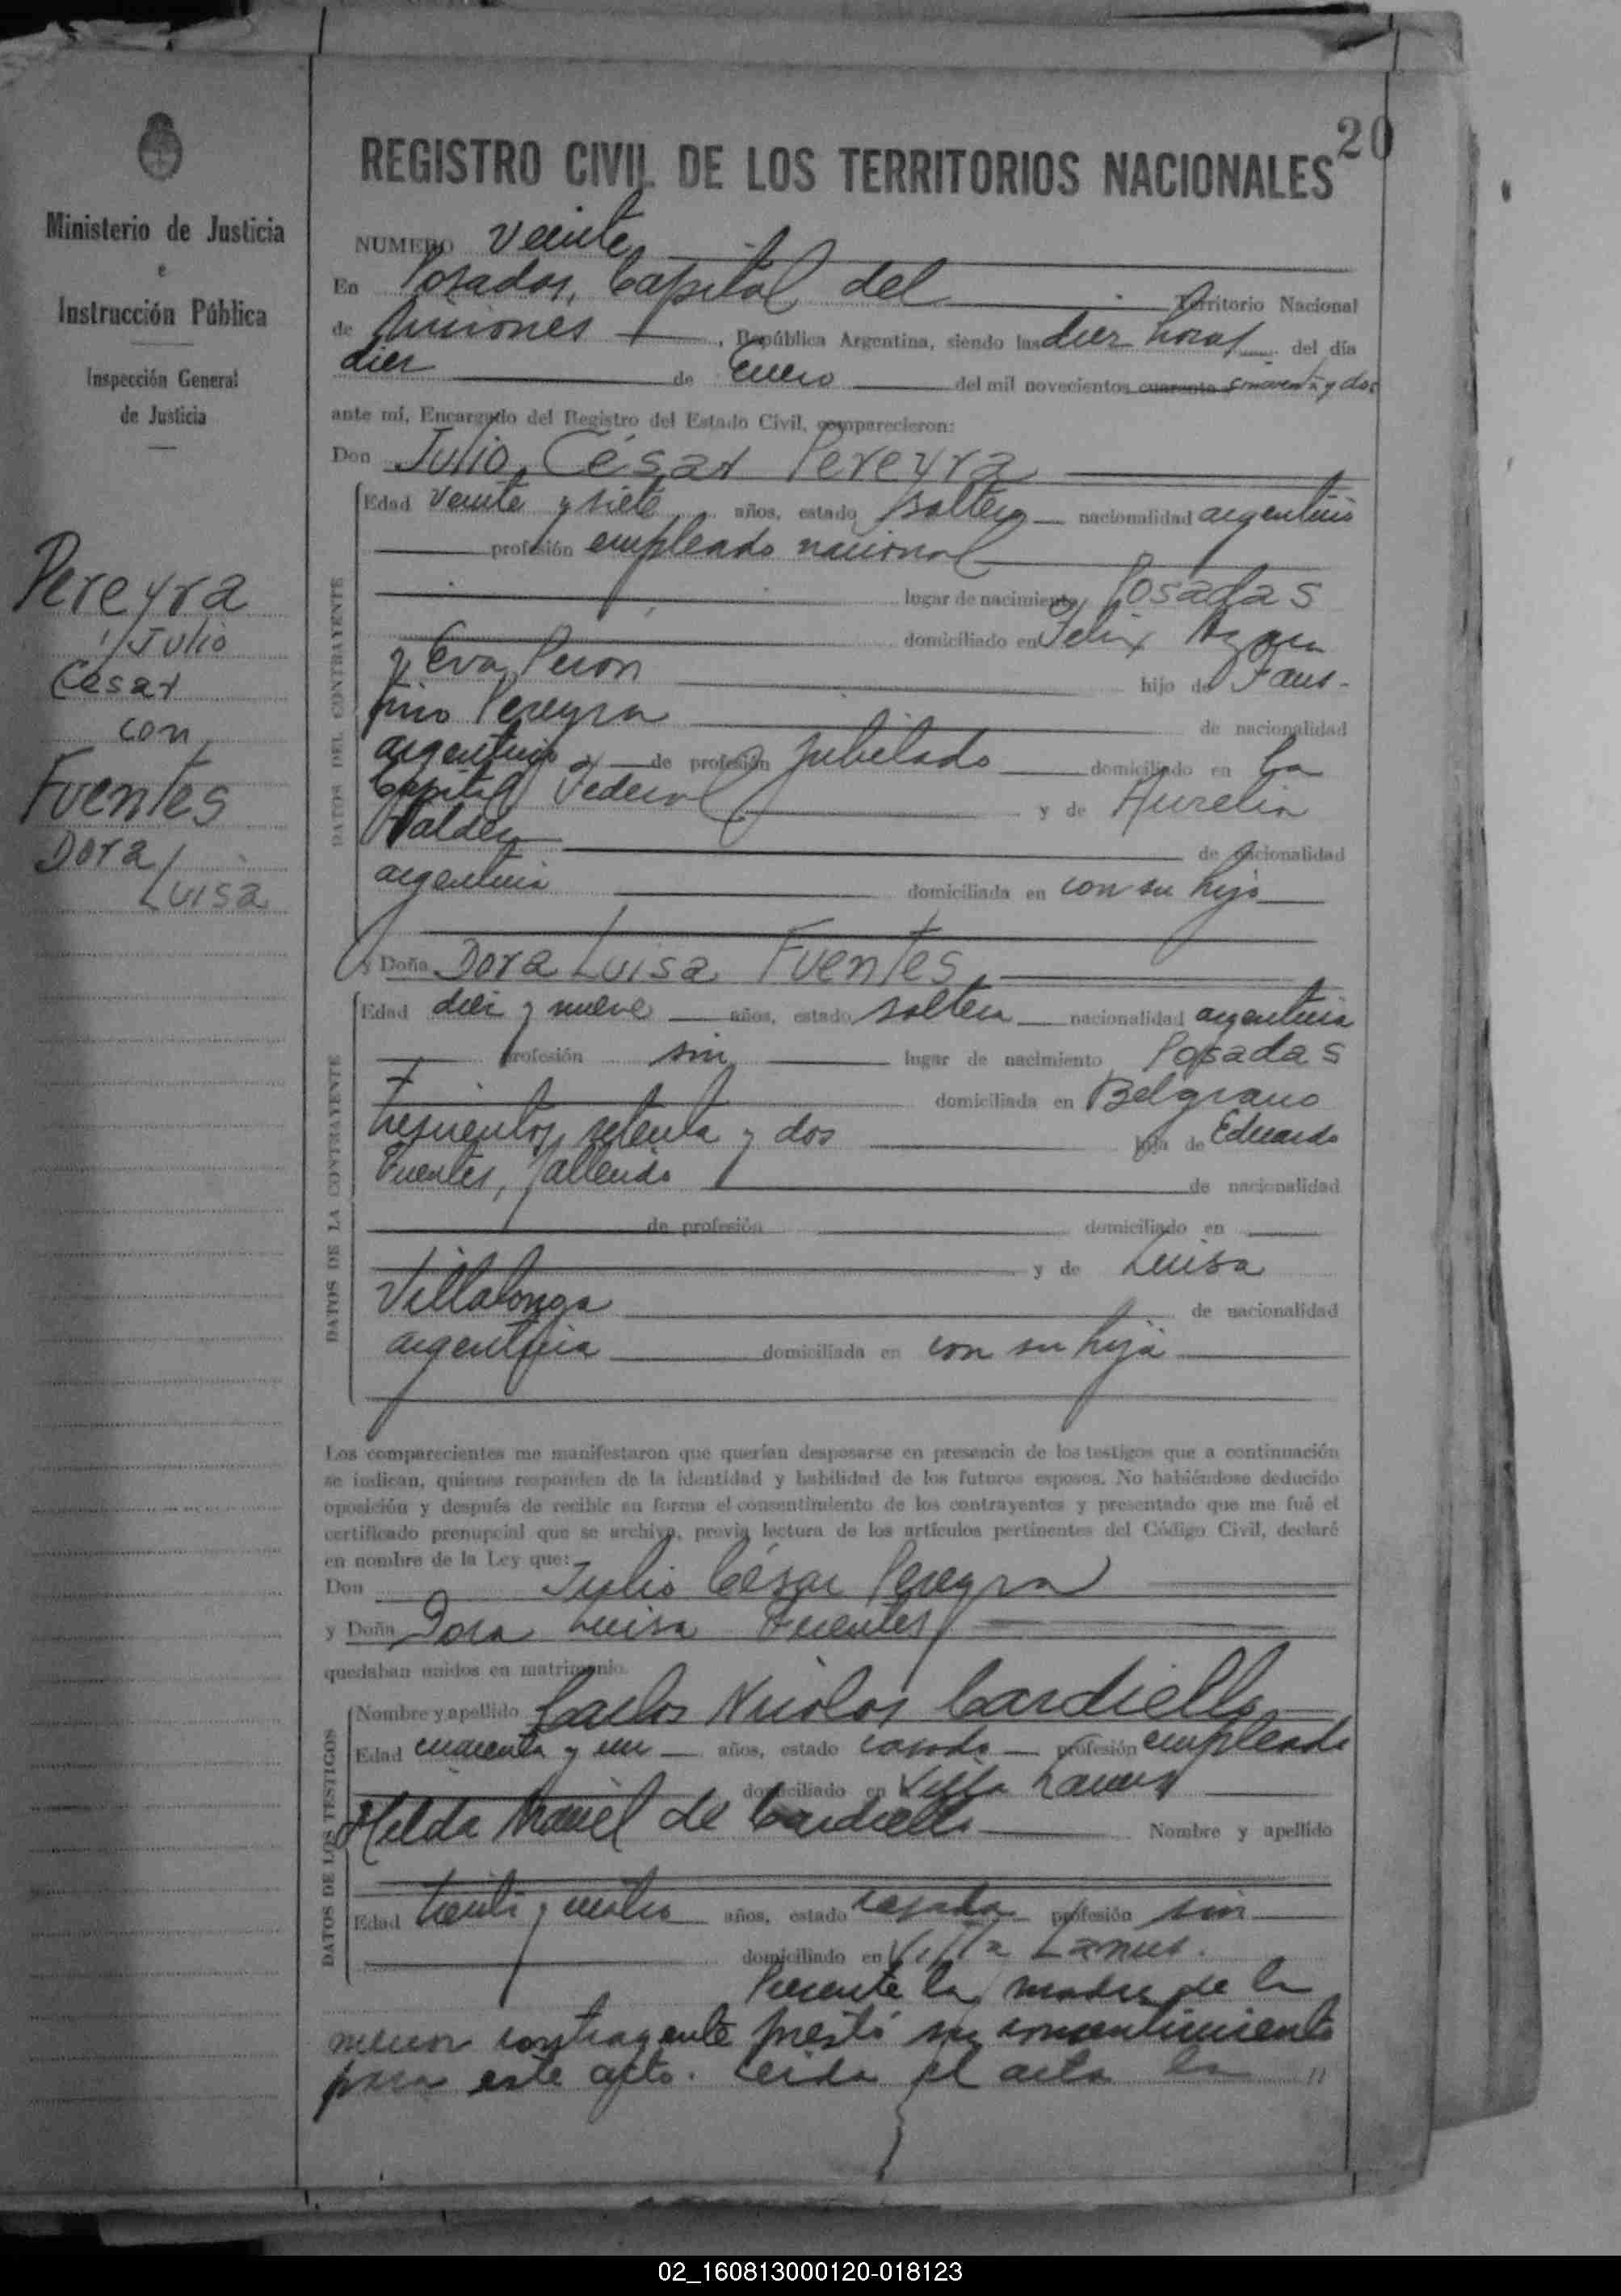 20
REGISTRO CIVIL DE LOS TERRITORIOS NACIONALES
Ministerio de Justicia
e
Instrucción Pública
Inspección General
de Justicia
Pereyra
Julio
César
con
Fuentes
Dora
Luisa
NUMERO Veinte
En Posadas, Capital del Territorio Nacional
de Misiones, República Argentina, siendo las diez horas del día
diez de Enero del mil novecientos cuarenta cincuenta y dos
ante mí, Encargado del Registro del Estado Civil, comparecieron:
Don Julio César Pereyra
DATOS DEL CONTRAYENTE
Edad veinte y siete años, estado soltero nacionalidad argentino
profesión empleado nacional
lugar de nacimiento Posadas
domiciliado en Felix
y Eva Peron hijo de Faus-
tino Pereyra de nacionalidad
argentino de profesión jubilado domiciliado en la
Capital Federal y de Aurelia
de nacionalidad
argentina domiciliada en con su hijo
y Doña Dora Luisa Fuentes
DATOS DE LA CONTRAYENTE
Edad diez y nueve años, estado soltera nacionalidad argentina
profesión sin lugar de nacimiento Posadas
domiciliada en Belgrano
trescientos setenta y dos hija de Eduardo
Fuentes, fallecido de nacionalidad
de profesión domiciliado en
y de Luisa
Villalonga de nacionalidad
argentina domiciliada en con su hija
Los comparecientes me manifestaron que querían desposarse en presencia de los testigos que a continuación
se indican, quienes responden de la identidad y habilidad de los futuros esposos. No habiéndose deducido
oposición y después de recibir en forma el consentimiento de los contrayentes y presentado que me fué el
certificado prenupcial que se archiva, previa lectura de los artículos pertinentes del Código Civil, declaré
en nombre de la Ley que:
Don Julio César Pereyra
y Doña Dora Luisa Fuentes
quedaban unidos en matrimonio.
DATOS DE LOS TESTIGOS
Nombre y apellido Carlos Nicolos Cardiello
Edad cuarenta y un años, estado casado profesión empleado
domiciliado en Villa Lanus
Hilda de Cardiello Nombre y apellido
Edad treinta y cuatro años, estado casada profesión sin
domiciliado en Villa Lanus.
Presente la madre de la
menor contrayente prestó su consentimiento
para este acto. Leida el acta la "
02_160813000120-018123